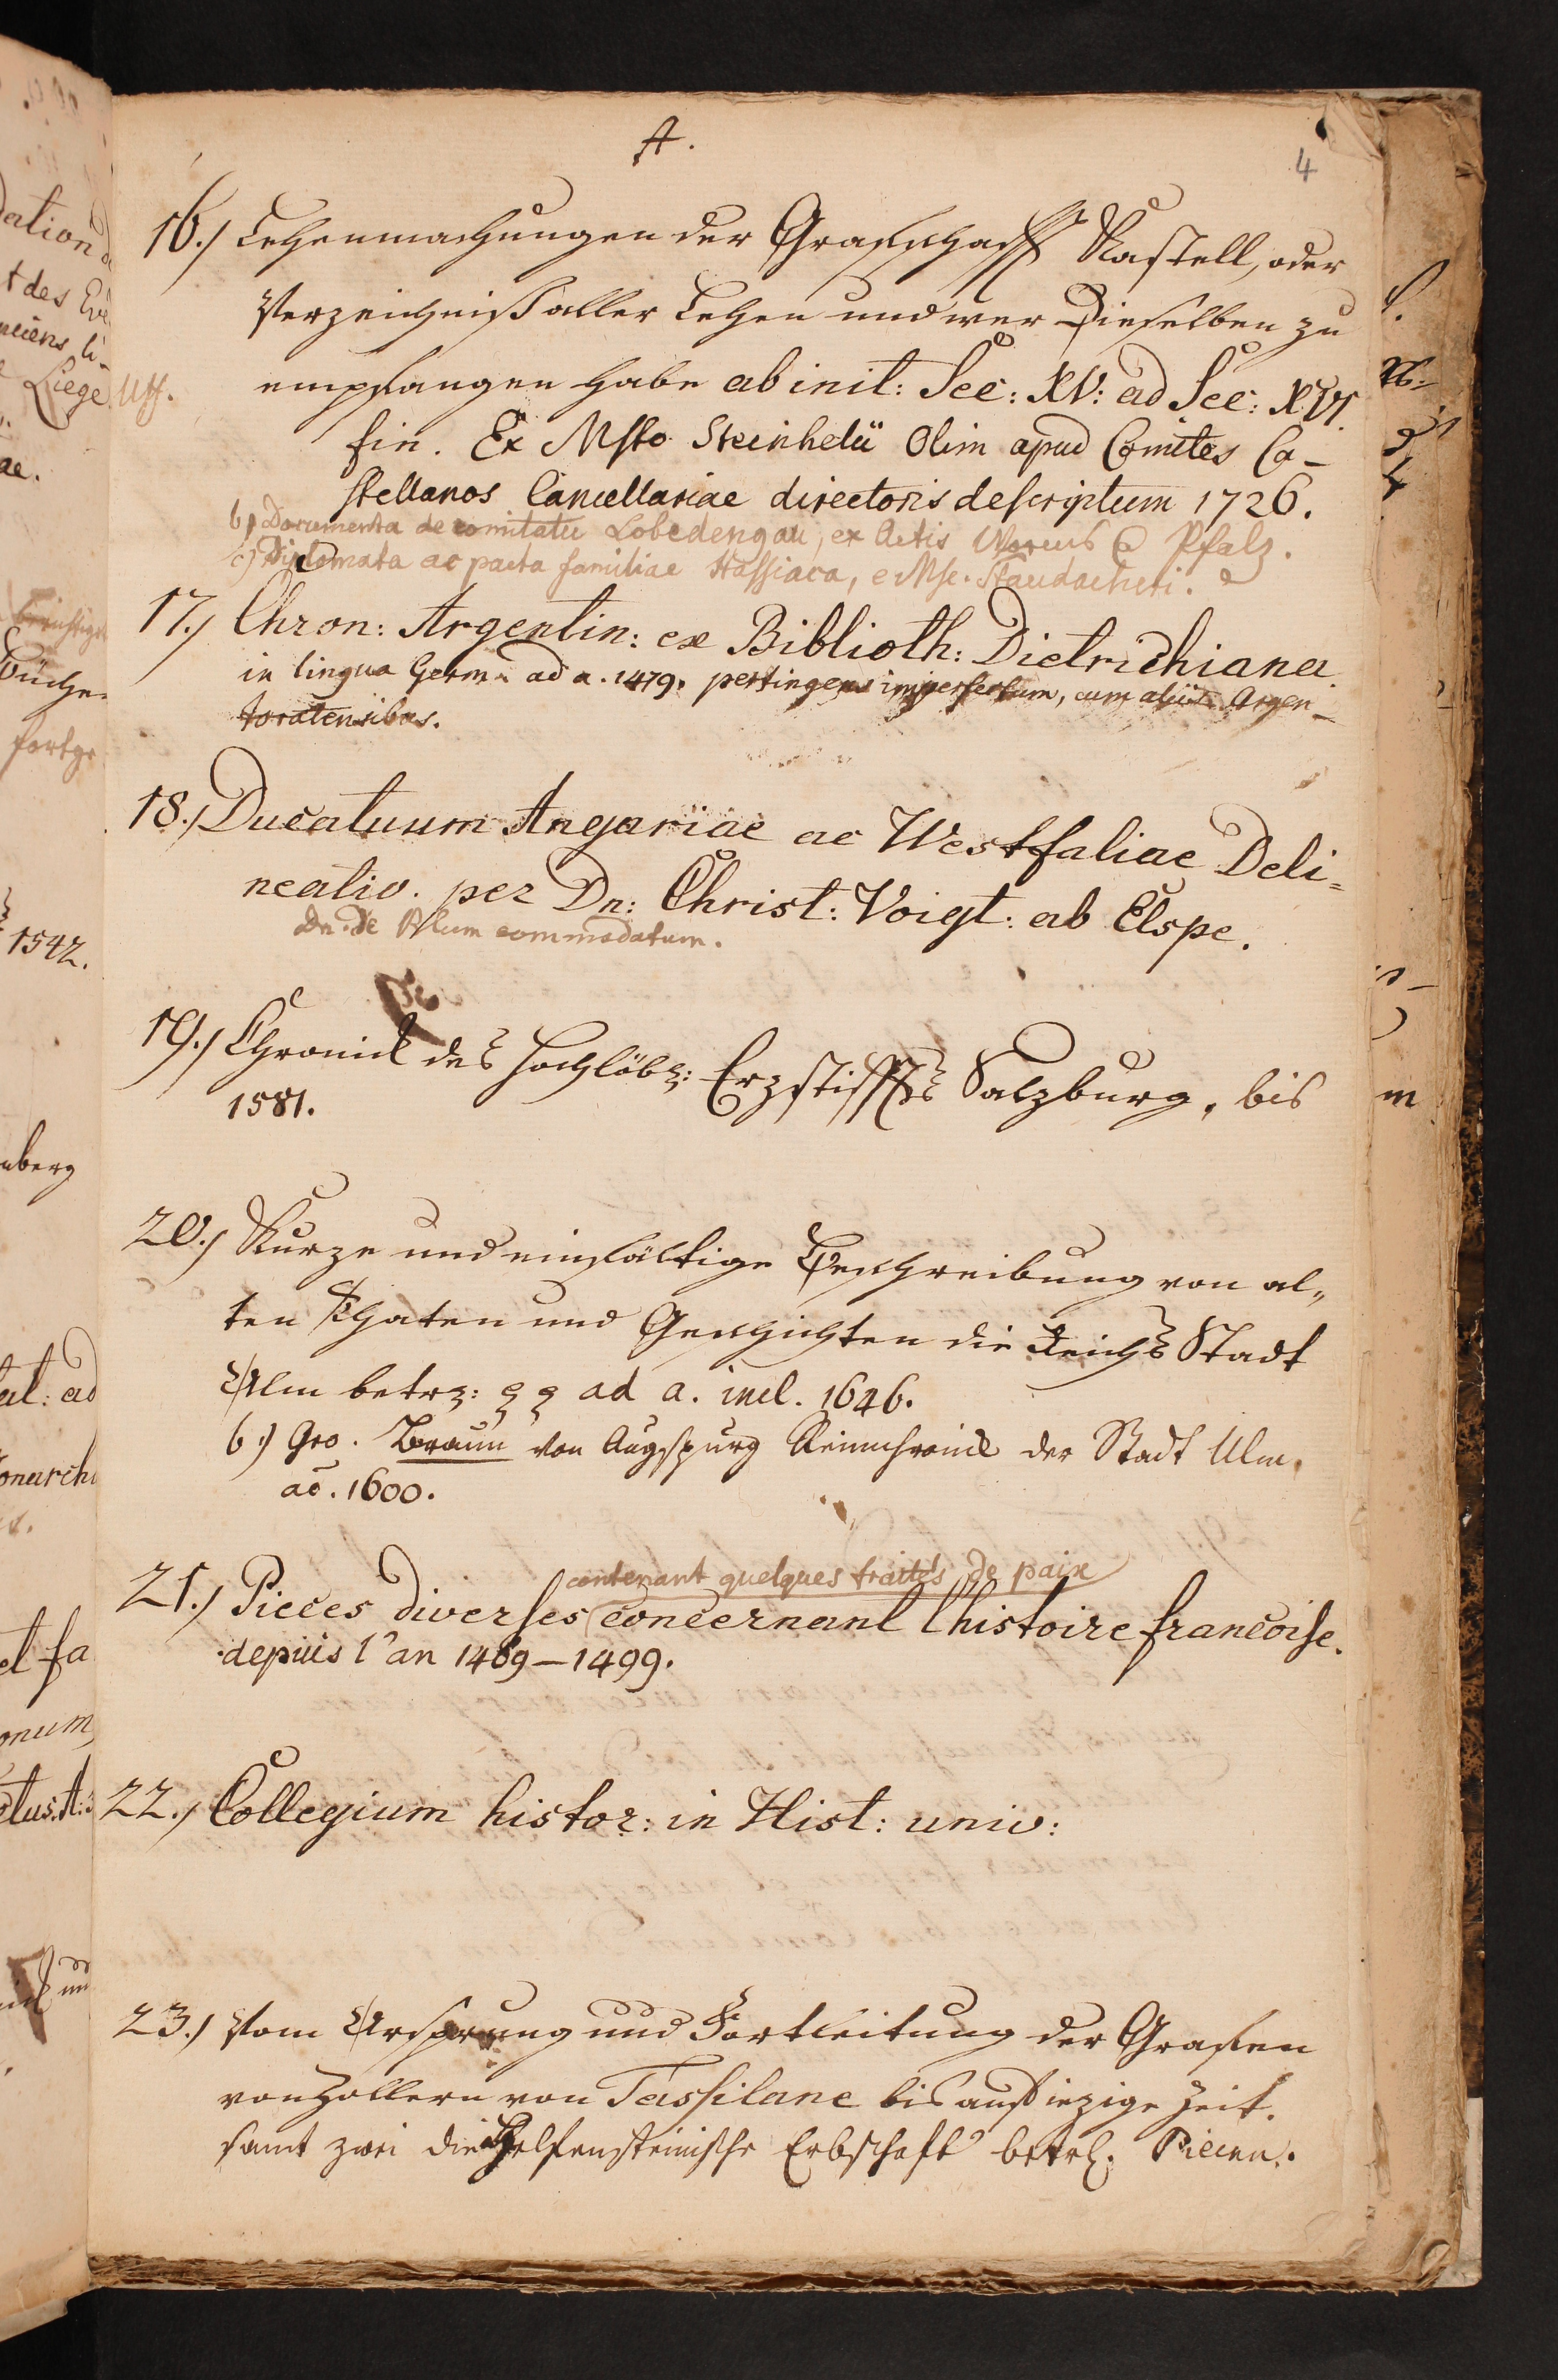 A.
4
16.) Lehenmachungen der Grafschafft Kastell, oder
Verzeichniß aller Lehen und wer Dieselben zu
empfangen habe ab init: Sec: XV: ad Sec: XVI.
fin. Ex Msto Steinhelii Olim apud Comites Ca-
stellanos Cancellariae directoris descriptum 1726.
b) Documenta de comitatu Lobedengau, ex Actis Pfalz.
c) Diplomata ac pacta familiae Hassiaca, e Msc. Staudacheri.
17.) Chron: Argentin: ex Biblioth: Dietrichiana
in lingua Germ. ad a. 1479. pertingens imperfectum, cum aliis Argen-
toratensibus.
18.) Ducatuum Angariae ac Westfaliae Deli-
neatio. per Dn: Christ: Voigt: ab Elspe.
Dn. de Blum commodatum.
19.) Chronick des Hochlöbl: Erzstiffts Salzburg, bis
1581.
20.) Kurze und einfältige Beschreibung von al„
ten Thaten und Geschichten die Reichs Stadt
Ulm betr: ad a. incl. 1646.
b.) Geo. Braun von Augspurg Reimchronick der Stadt Ulm.
ad. 1600.
contenant quelques traités de paix
21.) Pieces diverses concernant l'histoire francoise.
depuis l'an 1469–1499.
22.) Collegium histor: in Hist: univ:
23.) Vom Ursprung und Fortleitung der Grafen
von Zollern von Tassilane bis auf iezige Zeit.
samt zwei die Helfensteinische Erbschaft betrl. Piecen.